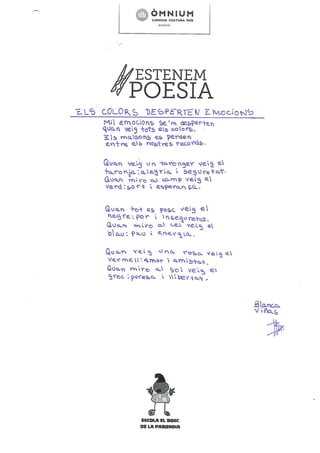 ÒMNIUM
LLENGUA CULTURA PAÍS
ESTENEM
POESIA
ELS COLORS DESPERTEN EMOCIONS
Mil emocions se'm desperten
quan veig tots els colors.
Els malsons es perden
entre els nostres records.
Quan veig un taronger veig el
taronja: alegria i seguretat.
Quan miro al camp veig el
verd: sort i esperança.
Quan tot es posc veig el
negre: por i inseguretat.
Quan miro al cel veig el
blau: pau i energia.
Quan veig una rosa veig el
vermell: amor i amistat.
Quan miro al sol veig el
groc: puresa i llibertat.
Blanca
Viñas
ESCOLA EL BOSC
DE LA PABORDIA